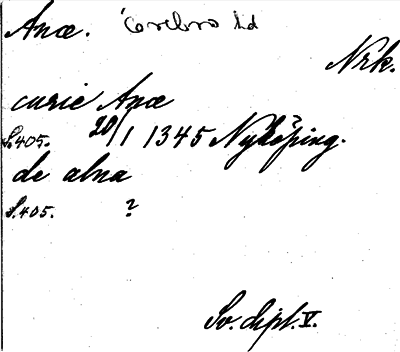 Anæ. Örebro ld
Nrk.
curie Anæ
S. 405. 20/1 1345 Nyköping.
de alna
S. 405. ?
Sv. dipl. V.